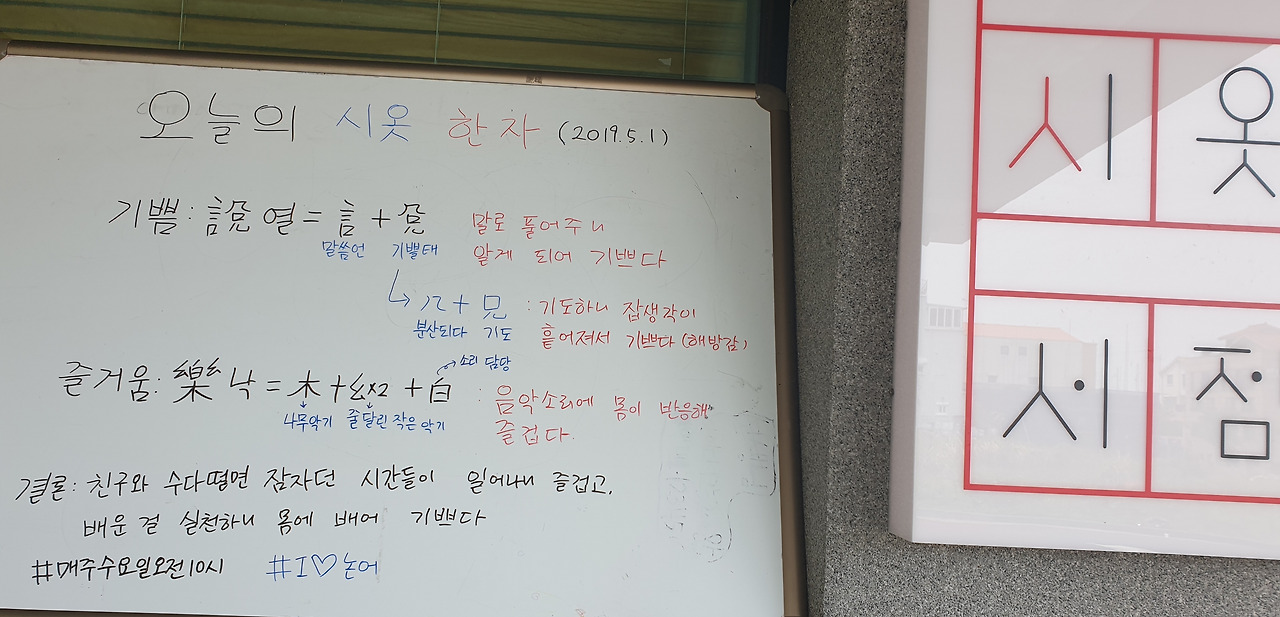 오늘의 시옷 한자 (2019.5.1)
기쁨: 說 열 = 言 + 兌
말씀언 기쁠태
말로 풀어주니
알게 되어 기쁘다
八 + 兄 : 기도하니 잡생각이
분산되다 기도 흩어져서 기쁘다(해방감)
소리 담당
즐거움: 樂 낙 = 木 + 幺x2 + 白 : 음악소리에 몸이 반응해
나무악기 줄달린 작은 악기 즐겁다.
결론: 친구와 수다떨면 잠자던 시간들이 일어나니 즐겁고,
배운 걸 실천하니 몸에 배어 기쁘다
#매주수요일오전10시 #I♡논어
시옷
서점